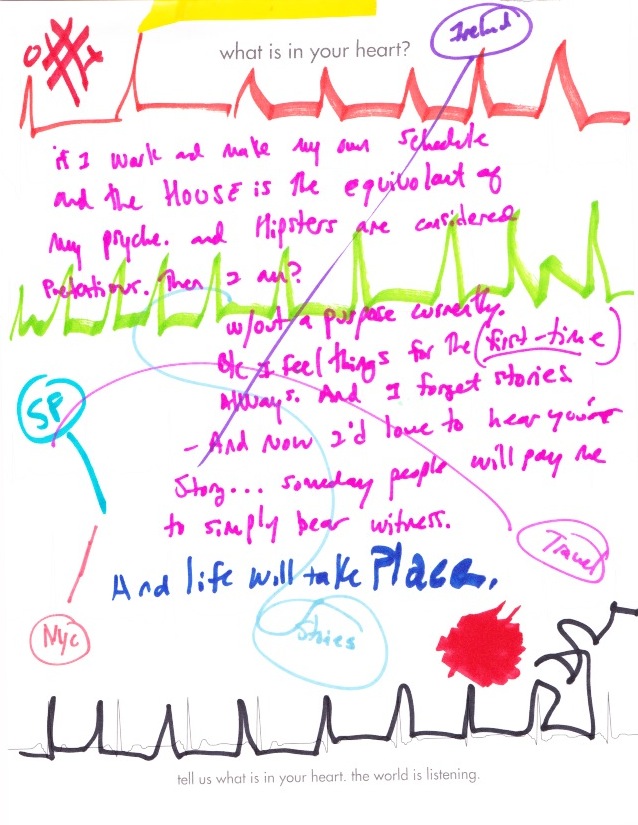 Ireland
what is in your heart?
if I work and make my own schedule
and the HOUSE is the equivolant of
my psyche. and Hipsters are considered
Pretentious. Then I am?
w/out a purpose currently.
Bc I feel things for the (first-time)
Always. And I forget stories
SF
- And now I'd love to hear your
Story... someday people will pay me
to simply bear witness.
Travel
And life will take Place.
NYC
Stories
tell us what is in your heart. the world is listening.